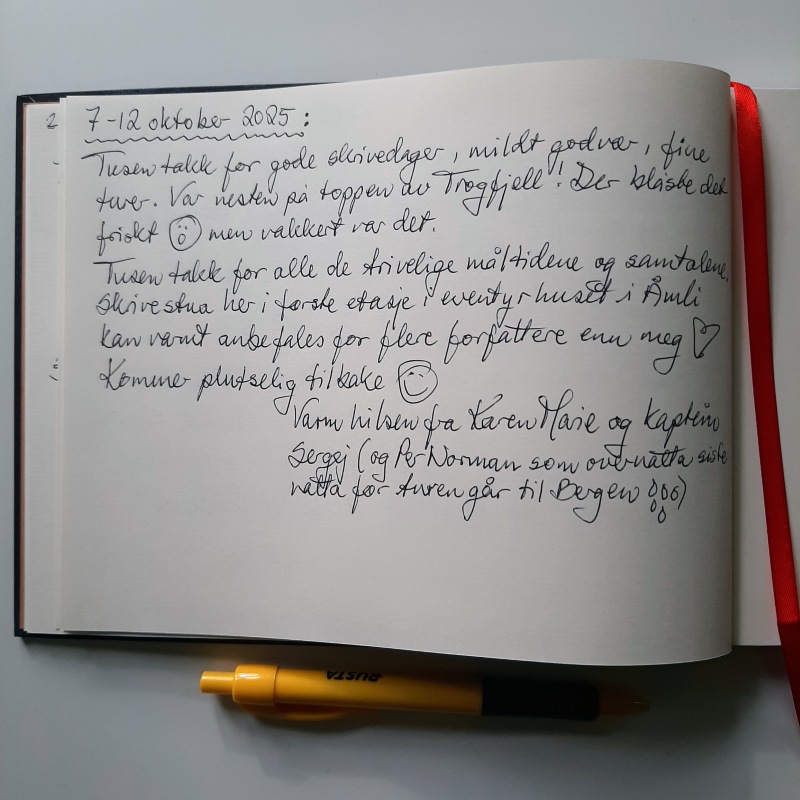 7-12 oktober 2025:
Tusen takk for gode skrivedager, mildt godvær, fine
turer. Var nesten på toppen av Trogfjell! Der blåste det
friskt men vakkert var det.
Tusen takk for alle de trivelige måltidene og samtalene.
Skrivestua her i første etasje i eventyrhuset i Åmli
kan varmt anbefales for flere forfattere enn meg ♡
Kommer plutselig tilbake ☺
Varm hilsen fra Karen Marie og kaptein
Sergej (og Per Norman som overnatta siste
natta før turen går til Bergen)
RUSTA
2